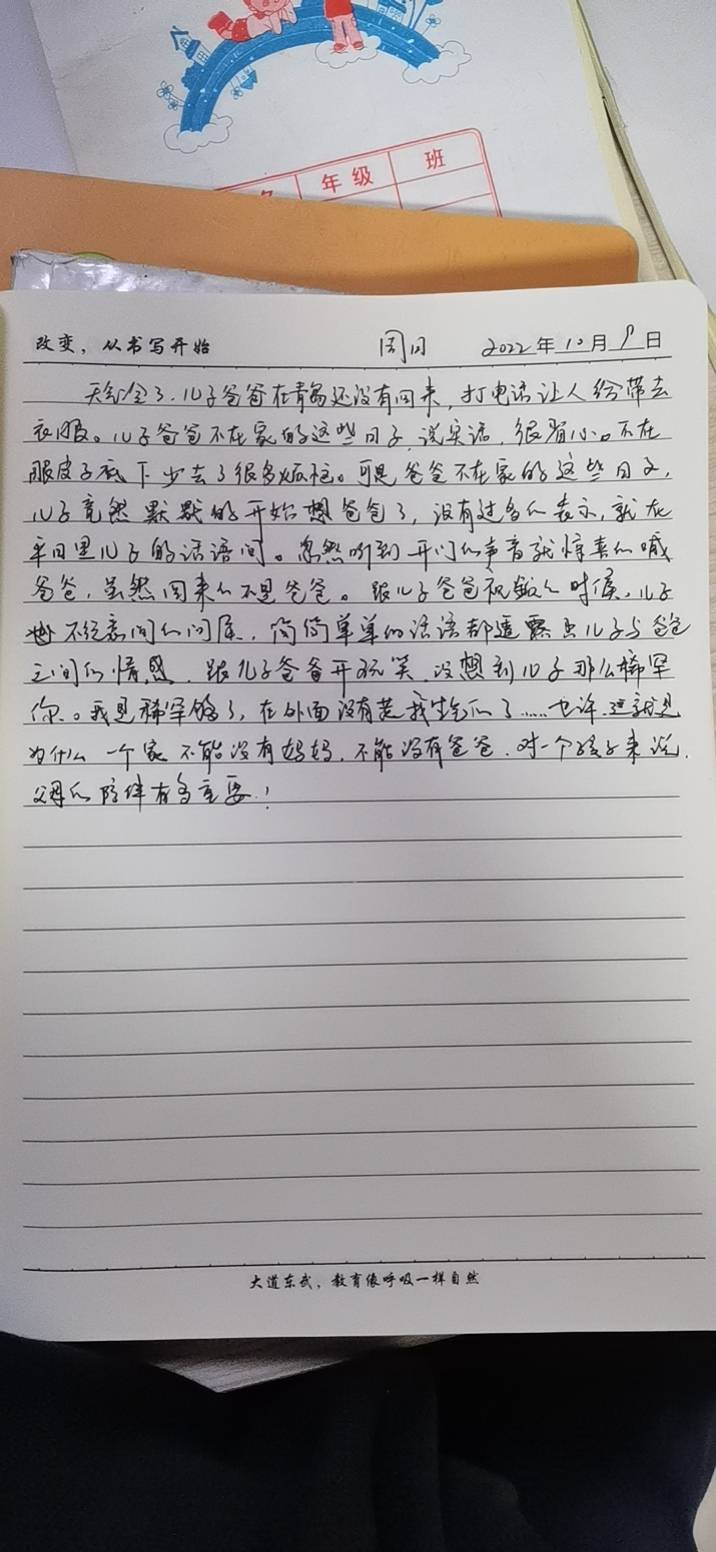 年级
班
改变，从书写开始
周日 2022年10月9日
天气冷了．儿子爸爸在青岛还没有回来，打电话让人给带去
衣服。儿子爸爸不在家的这些日子，说实话，很省心。不在
眼皮子底下少去了很多烦恼。可是爸爸不在家的这些日子，
儿子竟然默默的开始想爸爸了，没有过多的表示，就在
平日里儿子的话语间。忽然听到开门的声音就惊喜的喊
爸爸，虽然回来的不是爸爸。跟儿子爸爸视频的时候，儿子
不经意间的问候，简简单单的话语都透露出儿子与爸爸
之间的情感．跟儿子爸爸开玩笑，没想到儿子那么稀罕
你。我是稀罕够了，在外面没有惹我生气的了……也许．这就是
为什么一个家不能没有妈妈，不能没有爸爸．对一个孩子来说．
父母的陪伴有多重要！
大道东武，教育像呼吸一样自然